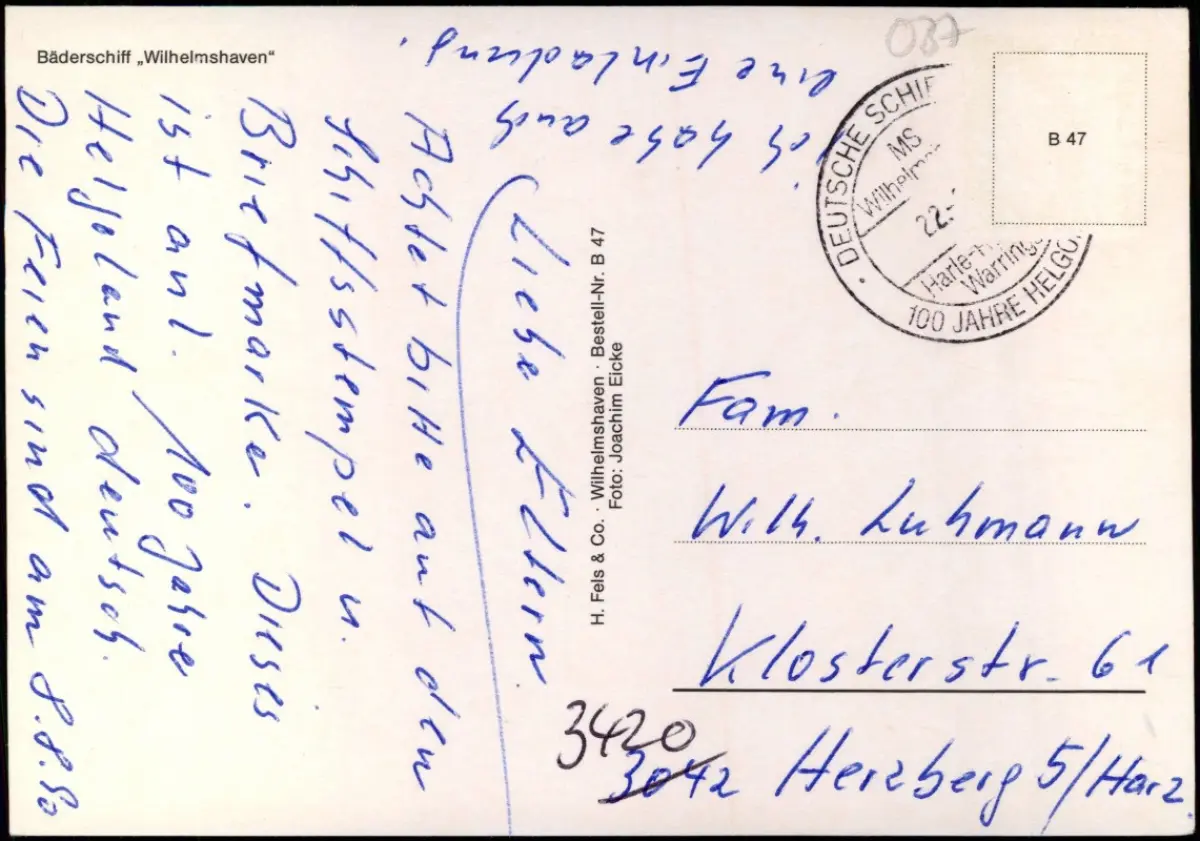 Bäderschiff „Wilhelmshaven“
Liebe Eltern
Achtet bitte auf den
Schiffsstempel u.
Briefmarke. Dieses
ist anl. 100 Jahre
Helgoland deutsch.
Die Feien sind am 8.8.90
ich habe auch
eine Einladung.
H. Fels & Co. · Wilhelmshaven · Bestell-Nr. B 47
Foto: Joachim Eicke
037
B 47
DEUTSCHE SCHIF
MS
Wilhelm
22.
Harle-
Warring
100 JAHRE HELGO
Fam.
Wilh. Luhmann
Klosterstr. 61
3420
3042 Herzberg 5/Harz.